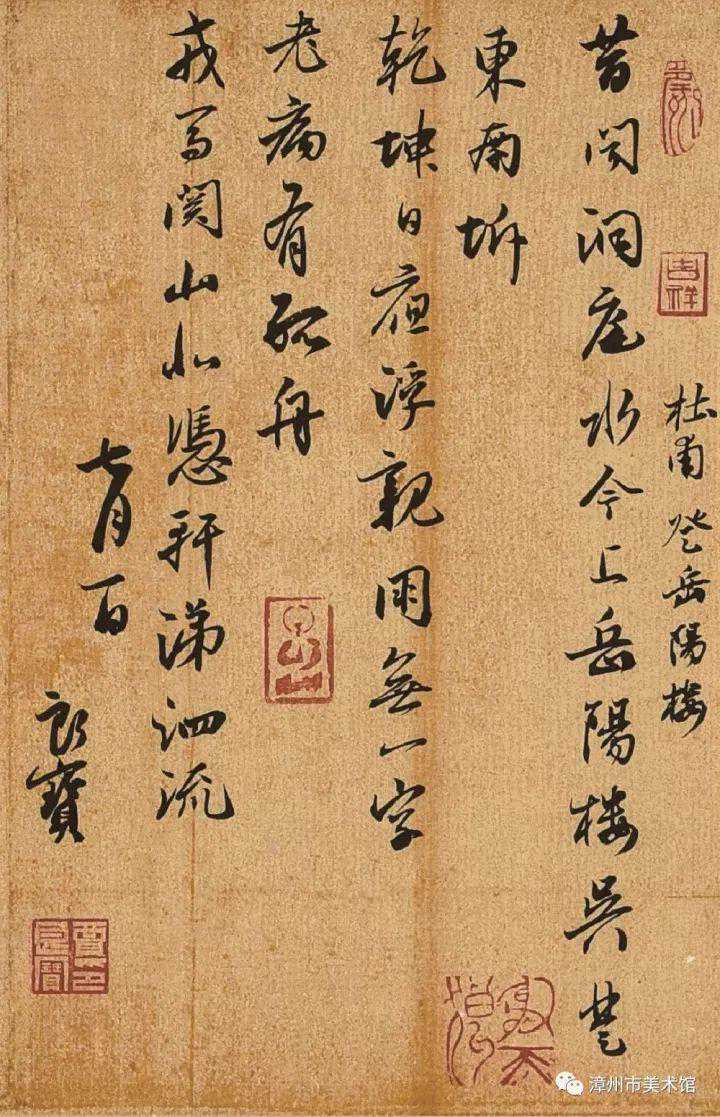 吉祥
杜甫登岳陽楼
昔闻洞庭水今上岳陽楼吴楚
東南坼
乾坤日夜浮親朋無一字
老病有孤舟
戎馬関山北憑軒涕泗流
七月
良寶
漳州市美术馆